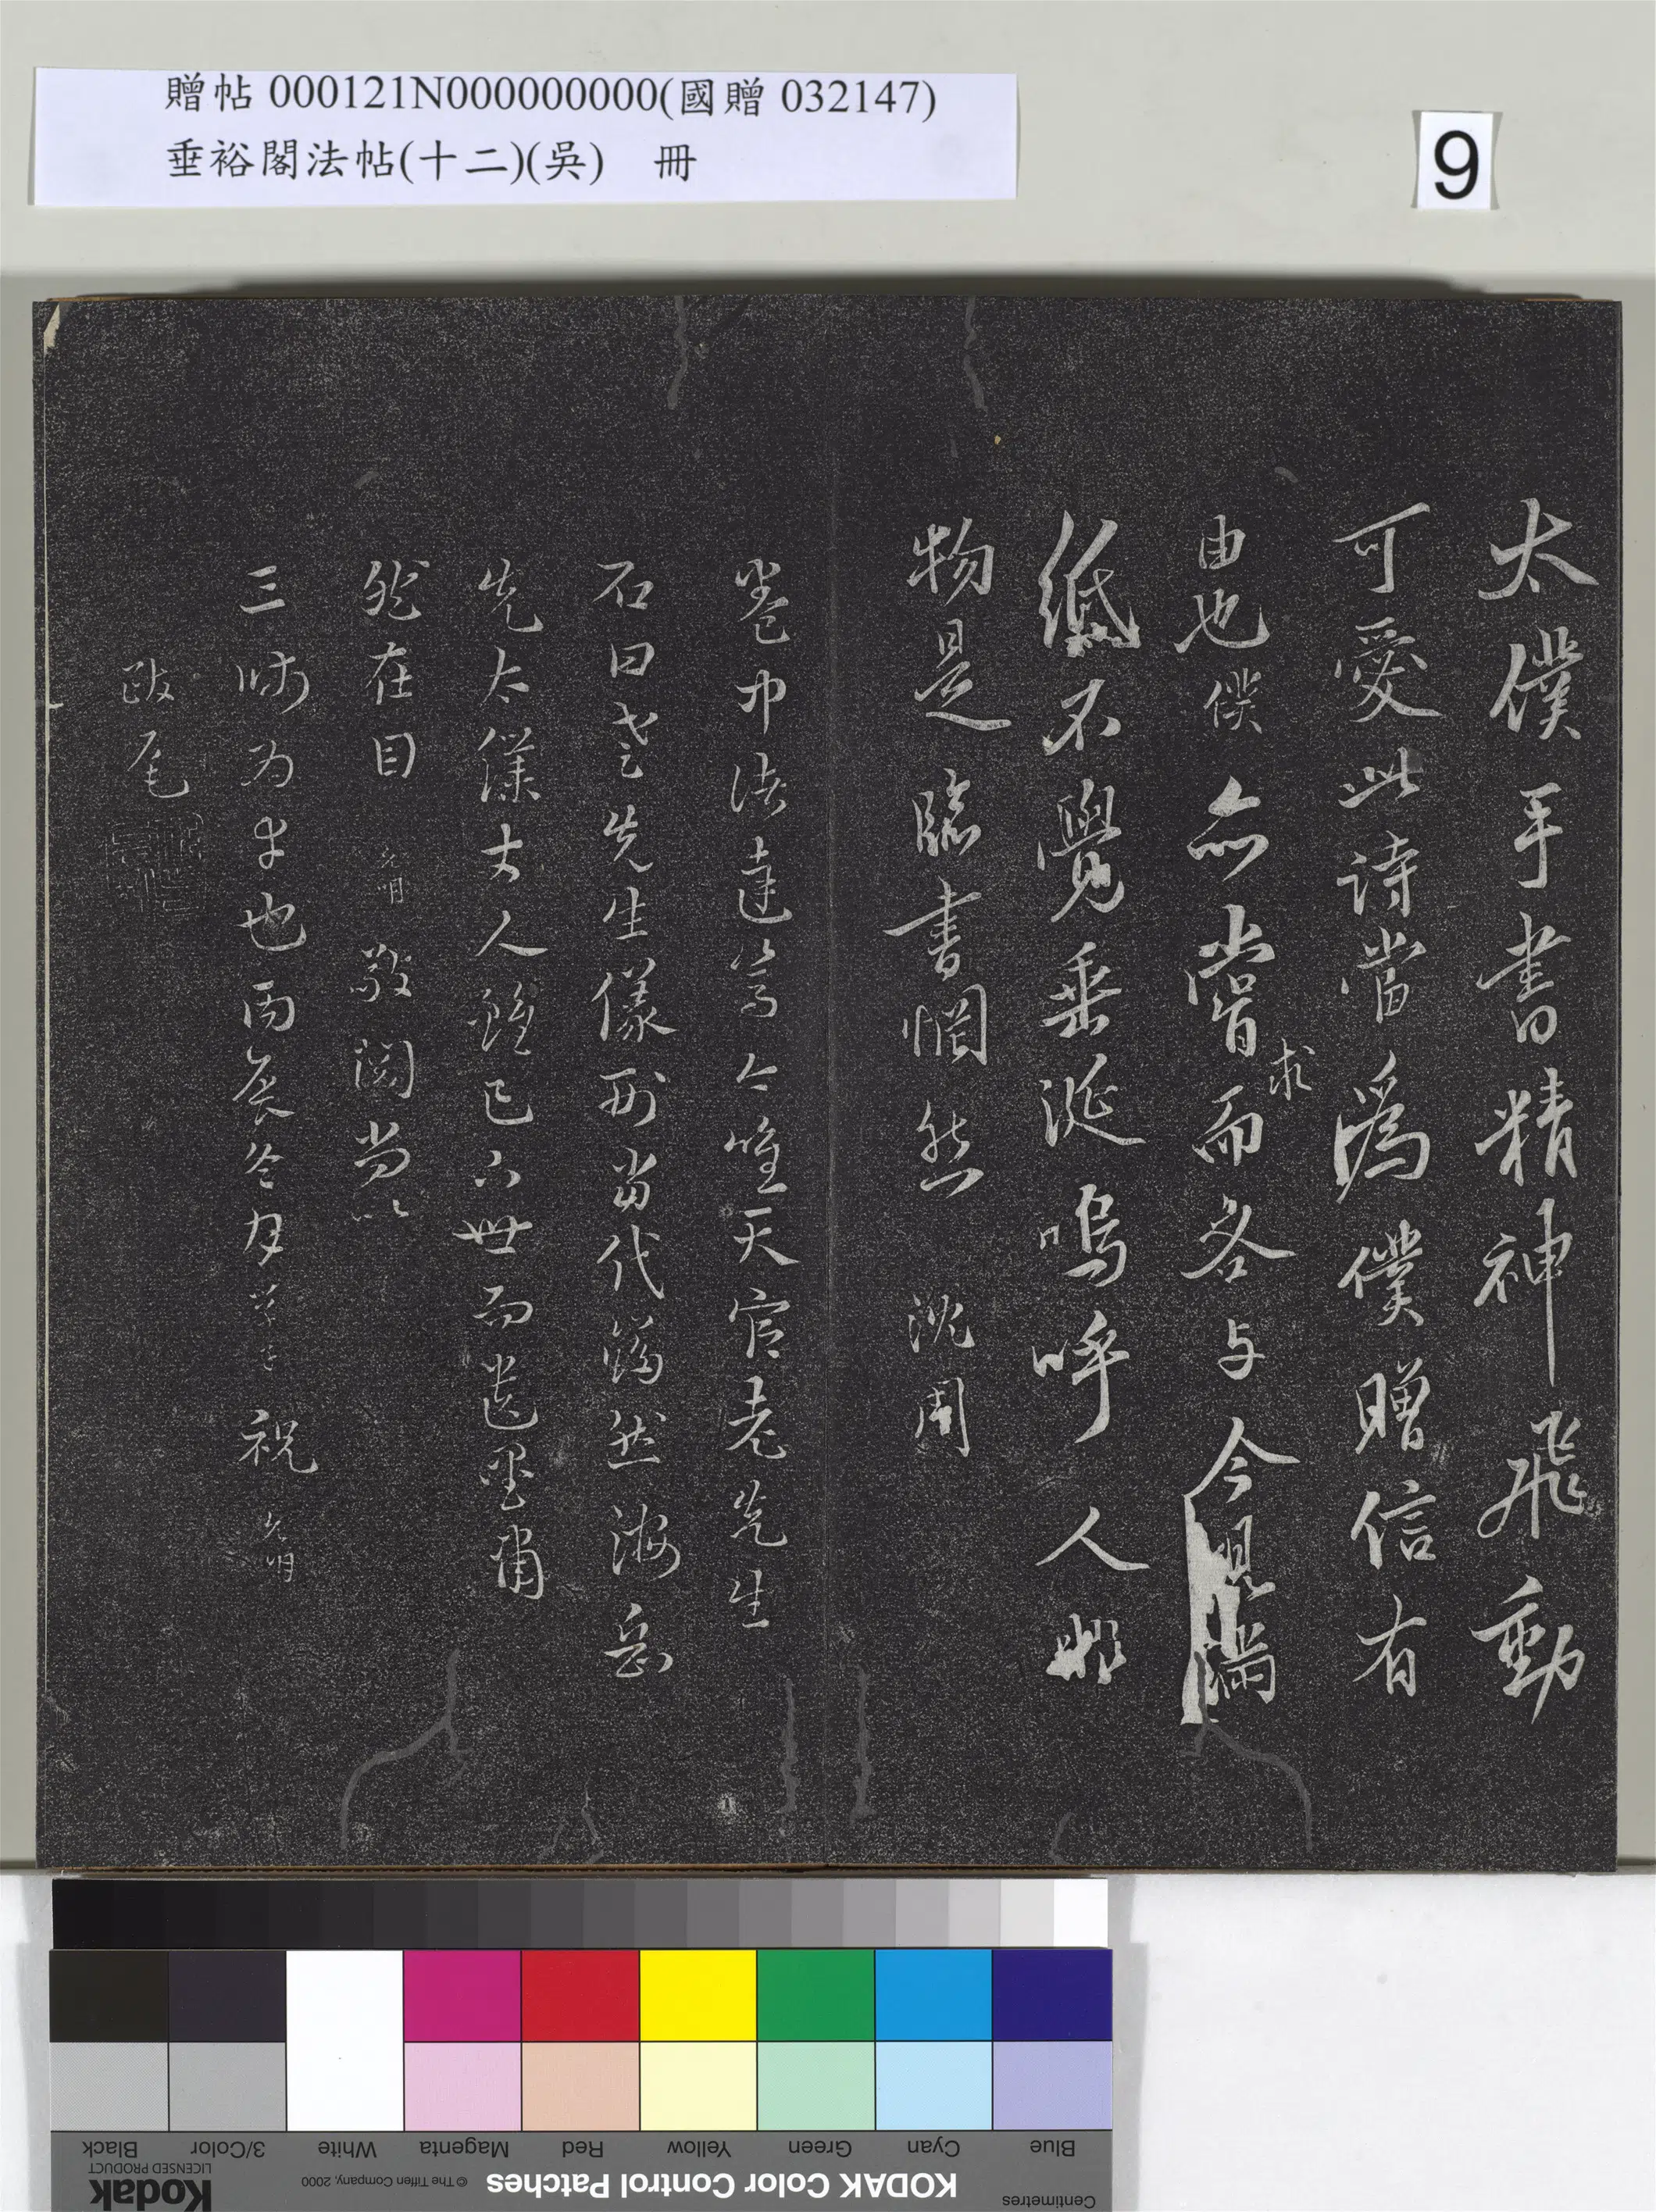 贈帖 000121N000000000(國贈 032147)
垂裕閣法帖(十二)(吳) 冊
9
太僕手書精神飛動
可愛此詩當為僕贈信有
由也僕亦嘗求而吝与今見
紙不覺垂涎嗚呼人
物是臨書惘然 沈周
卷中法達 今唯天官老先生
石田老先生儀刑當代 然海岳
先太僕丈人 已下世而遺墨
然在目 允明 敬閱 以
三 為 也丙辰冬 祝允明
跋尾
Blue
Cyan
Green
Yellow
Red
Magenta
White
3/Color
Black
Centimetres
KODAK Color Control Patches
© The Tiffen Company, 2000
Kodak
LICENSED PRODUCT